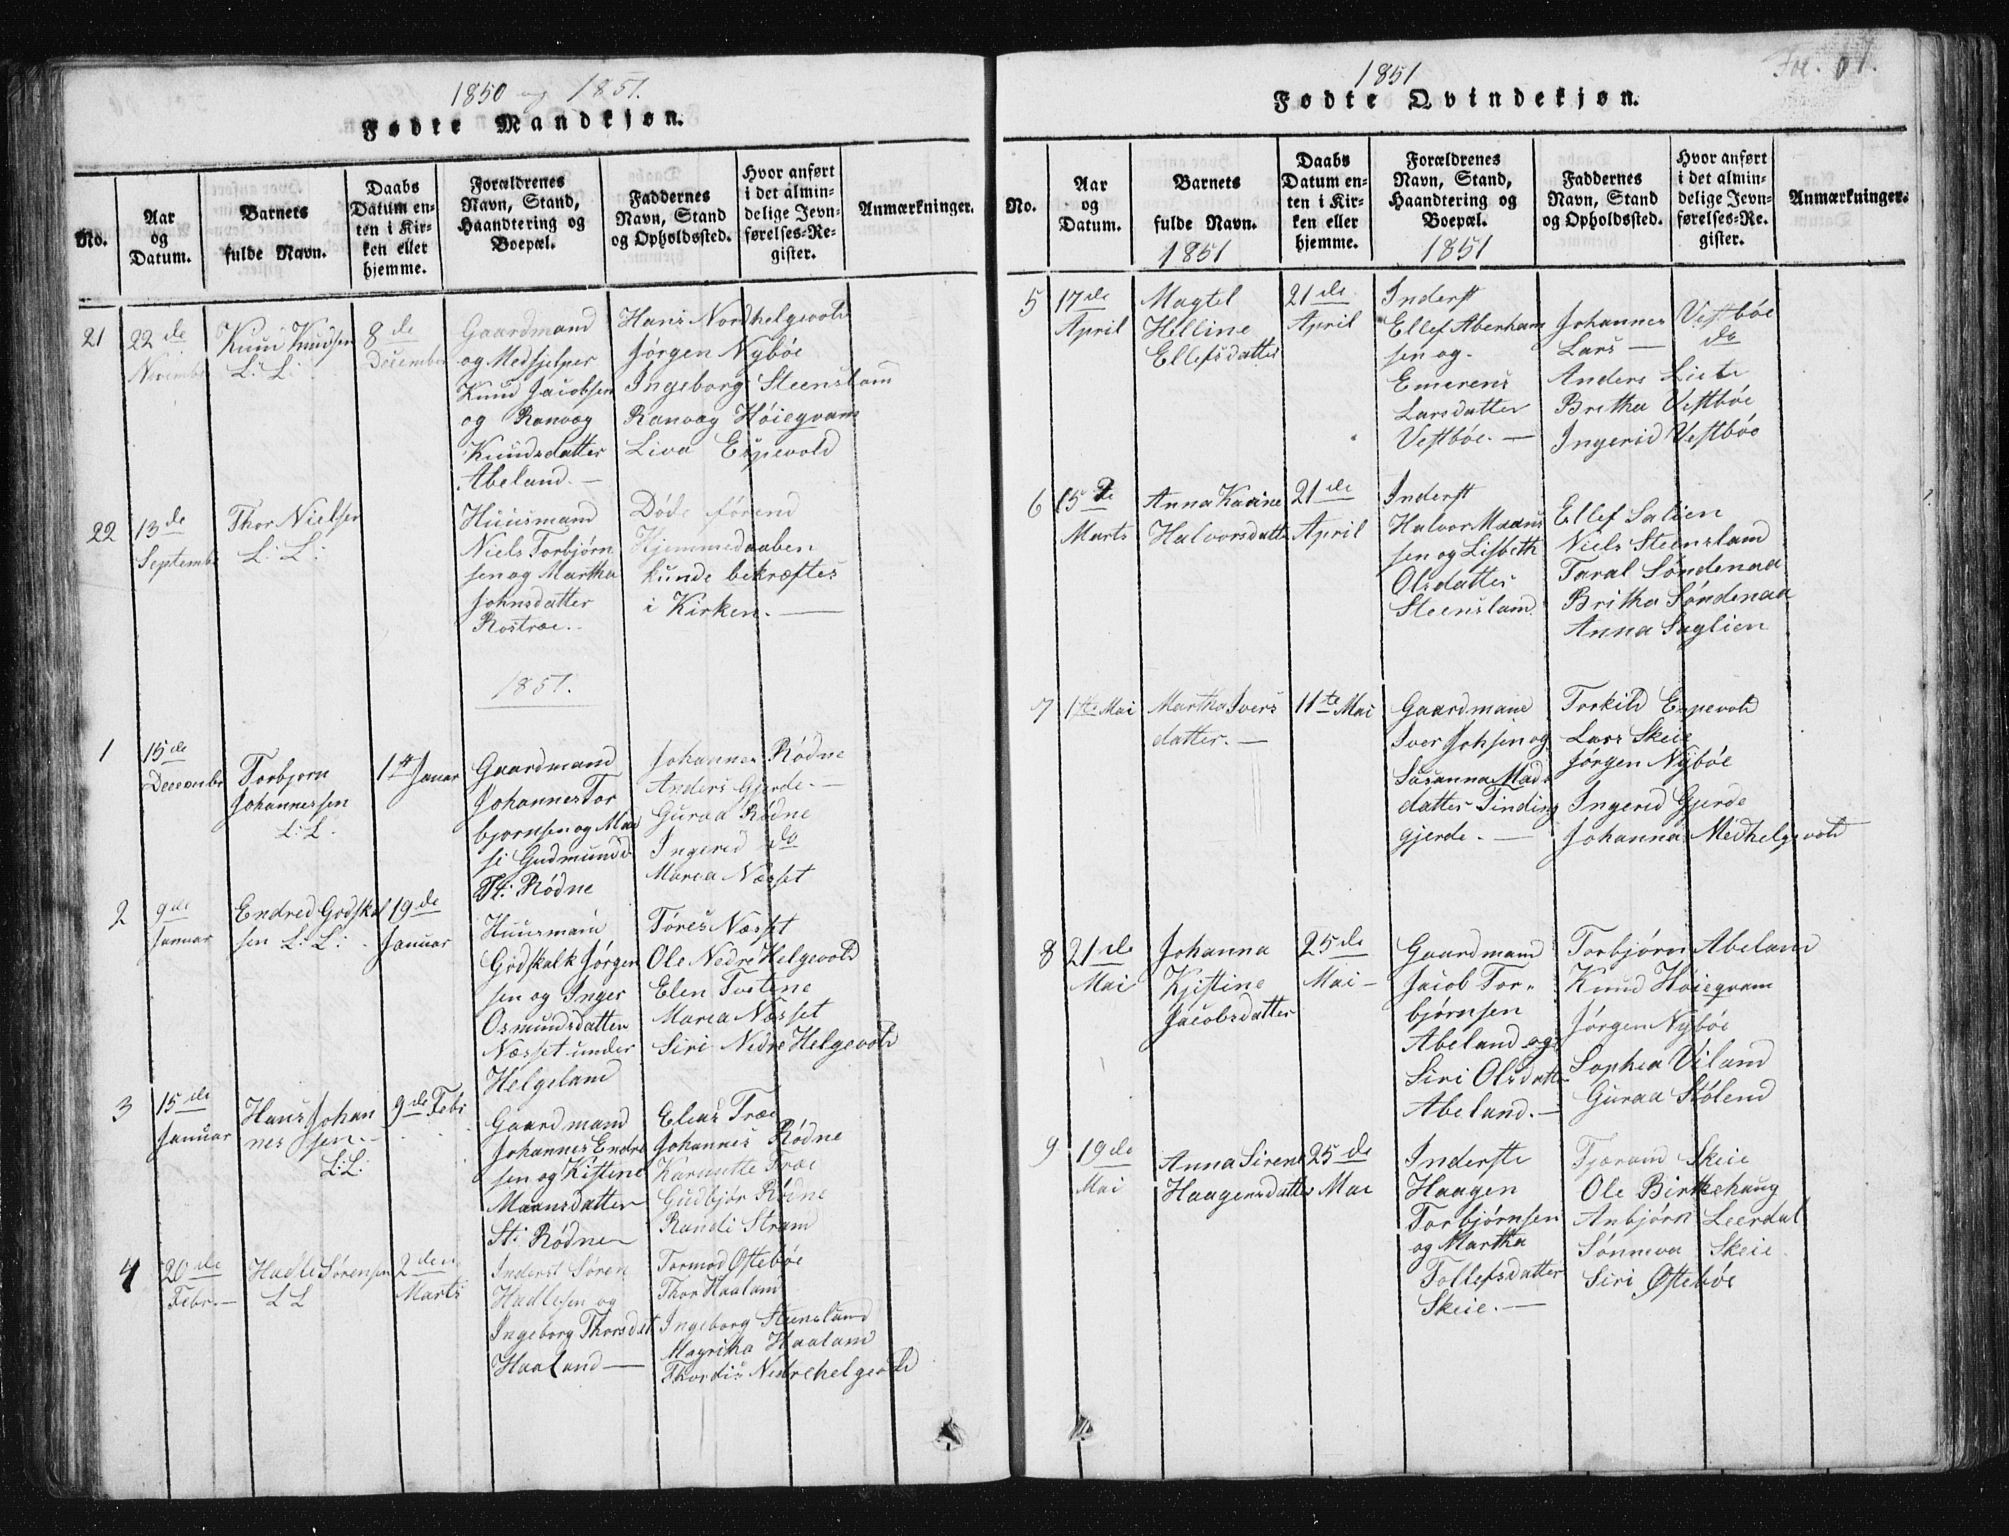 1850 og 1851.
Fødte Mandkjøn.
No.
Aar og Datum.
Barnets fulde Navn.
Daabs Datum enten i Kirken eller hjemme.
Forældrenes Navn, Stand, Haandtering og Boepæl.
Faddernes Navn, Stand og Opholdssted.
Hvor anført i det almindelige Jevnførelses-Register.
Anmærkninger.
21
22de
Novembr
Knud Knudsen
L: L:
8de
December
Gaardmand
og Medhjelper
Knud Jacobsen
og Ranvæg
Knudsdatter
Abeland. —
Hans Nordhelgevold
Jørgen Nybøe
Ingeborg Steensland
Ranvæg Høiegvam
Liva Espevold
22
13de
Septembr
Thor Nielsen
L: L:
Huusmand
Niels Torbjørn
sen og Martha
Johnsdatter
Rostræe.
Døde førend
Hjemmedaaben
kunde bekræftes
i Kirken. —
1851.
1
15de
Decembr
Torbjørn
Johannessen
L: L.
1ste Januar
Gaardmand
Johannes Tor
bjørnsen og Mar
si Gudmundsd
St: Rødne
Johannes Rødne
Anders Gjerde. —
Guraa Rødne
Ingerid do
Marea Næsset
2
9de
Januar
Endred Godskal
sen L: L:
19de
Januar
Huusmand
Godskalk Jørgen
sen og Inger
Osmundsdatter
Næsset under
Helgeland
Tøres Næsset
Ole Nedre Helgevold
Elen Tvetene
Marea Næsset
Siri Nedre Helgevold
3
15de
Januar
Hans Johan
nes sen. —
L: L:
9de Febr
Gaardmand
Johannes Endre
sen og Kistine
Maansdatter
St: Rødne
Elias Træe
Johannes Rødne
Karinette Træe
Gudbjør Rødne
Randi Strand
4
20de
Febr. —
Hadle Sørensen
L L
2den
Marts
Inderst Søren
Hadlesen og
Ingeborg Thorsdat
Haaland —
Tormod Østebøe
Thor Haaland
Ingeborg Steensland
Magritha Haaland
Thordis Nedrehelgevold
Foe. 61.
1851
Fødte Qvindekjøn.
No.
Aar og Datum.
Barnets fulde Navn.
Daabs Datum enten i Kirken eller hjemme.
Forældrenes Navn, Stand, Haandtering og Boepæl.
Faddernes Navn, Stand og Opholdssted.
Hvor anført i det almindelige Jevnførelses-Register.
Anmærkninger.
1851
1851
5
17de
April
Magtel
Helline
Ellefsdatter
21de
April
Inderst
Ellef Aberham
sen og
Emerens
Larsdatter
Vestbøe. —
Johannes Vestbøe
Lars — do
Anders Liete
Britha Vestbøe
Ingerid Vestbøe
6
15de
Marts
Anna Kaaine
Halvorsdatter
21de
April
Inderst
Halvor Maans
sen og Lisbeth
Olsdatter
Steensland.
Ellef Salien
Niels Steensland
Taral Søndenaa
Britha Søndenaa
Anna Saglien
7
1ste Mai
Martha Ivers
datter. —
11te Mai
Gaardmand
Iver Johsen og
Susanna Mads
datter Tinding
gjerde. —
Torkild Espevold
Lars Skeie
Jørgen Nybøe
Ingerid Gjerde
Johanna Medhelgevold
8
21de
Mai
Johanna
Kjistine
Jacobsdatter
25de
Mai —
Gaardmand
Jacob Tor-
bjørnsen
Abeland og
Siri Olsdatter
Abeland. —
Torbjørn Abeland
Knud Høiegvam
Jørgen Nybøe
Sophea Viland
Guraa Stølend
9
19de
Mai
Anna Sirene
Haagensdatter
25de
Mai
Inderste
Haagen
Torbjørnsen
og Martha
Tollefsdatter
Skeie. —
Tjærand Skeie
Ole Birkehaug
Anbjørn Leerdal
Sønneva Skeie
Siri Østebøe